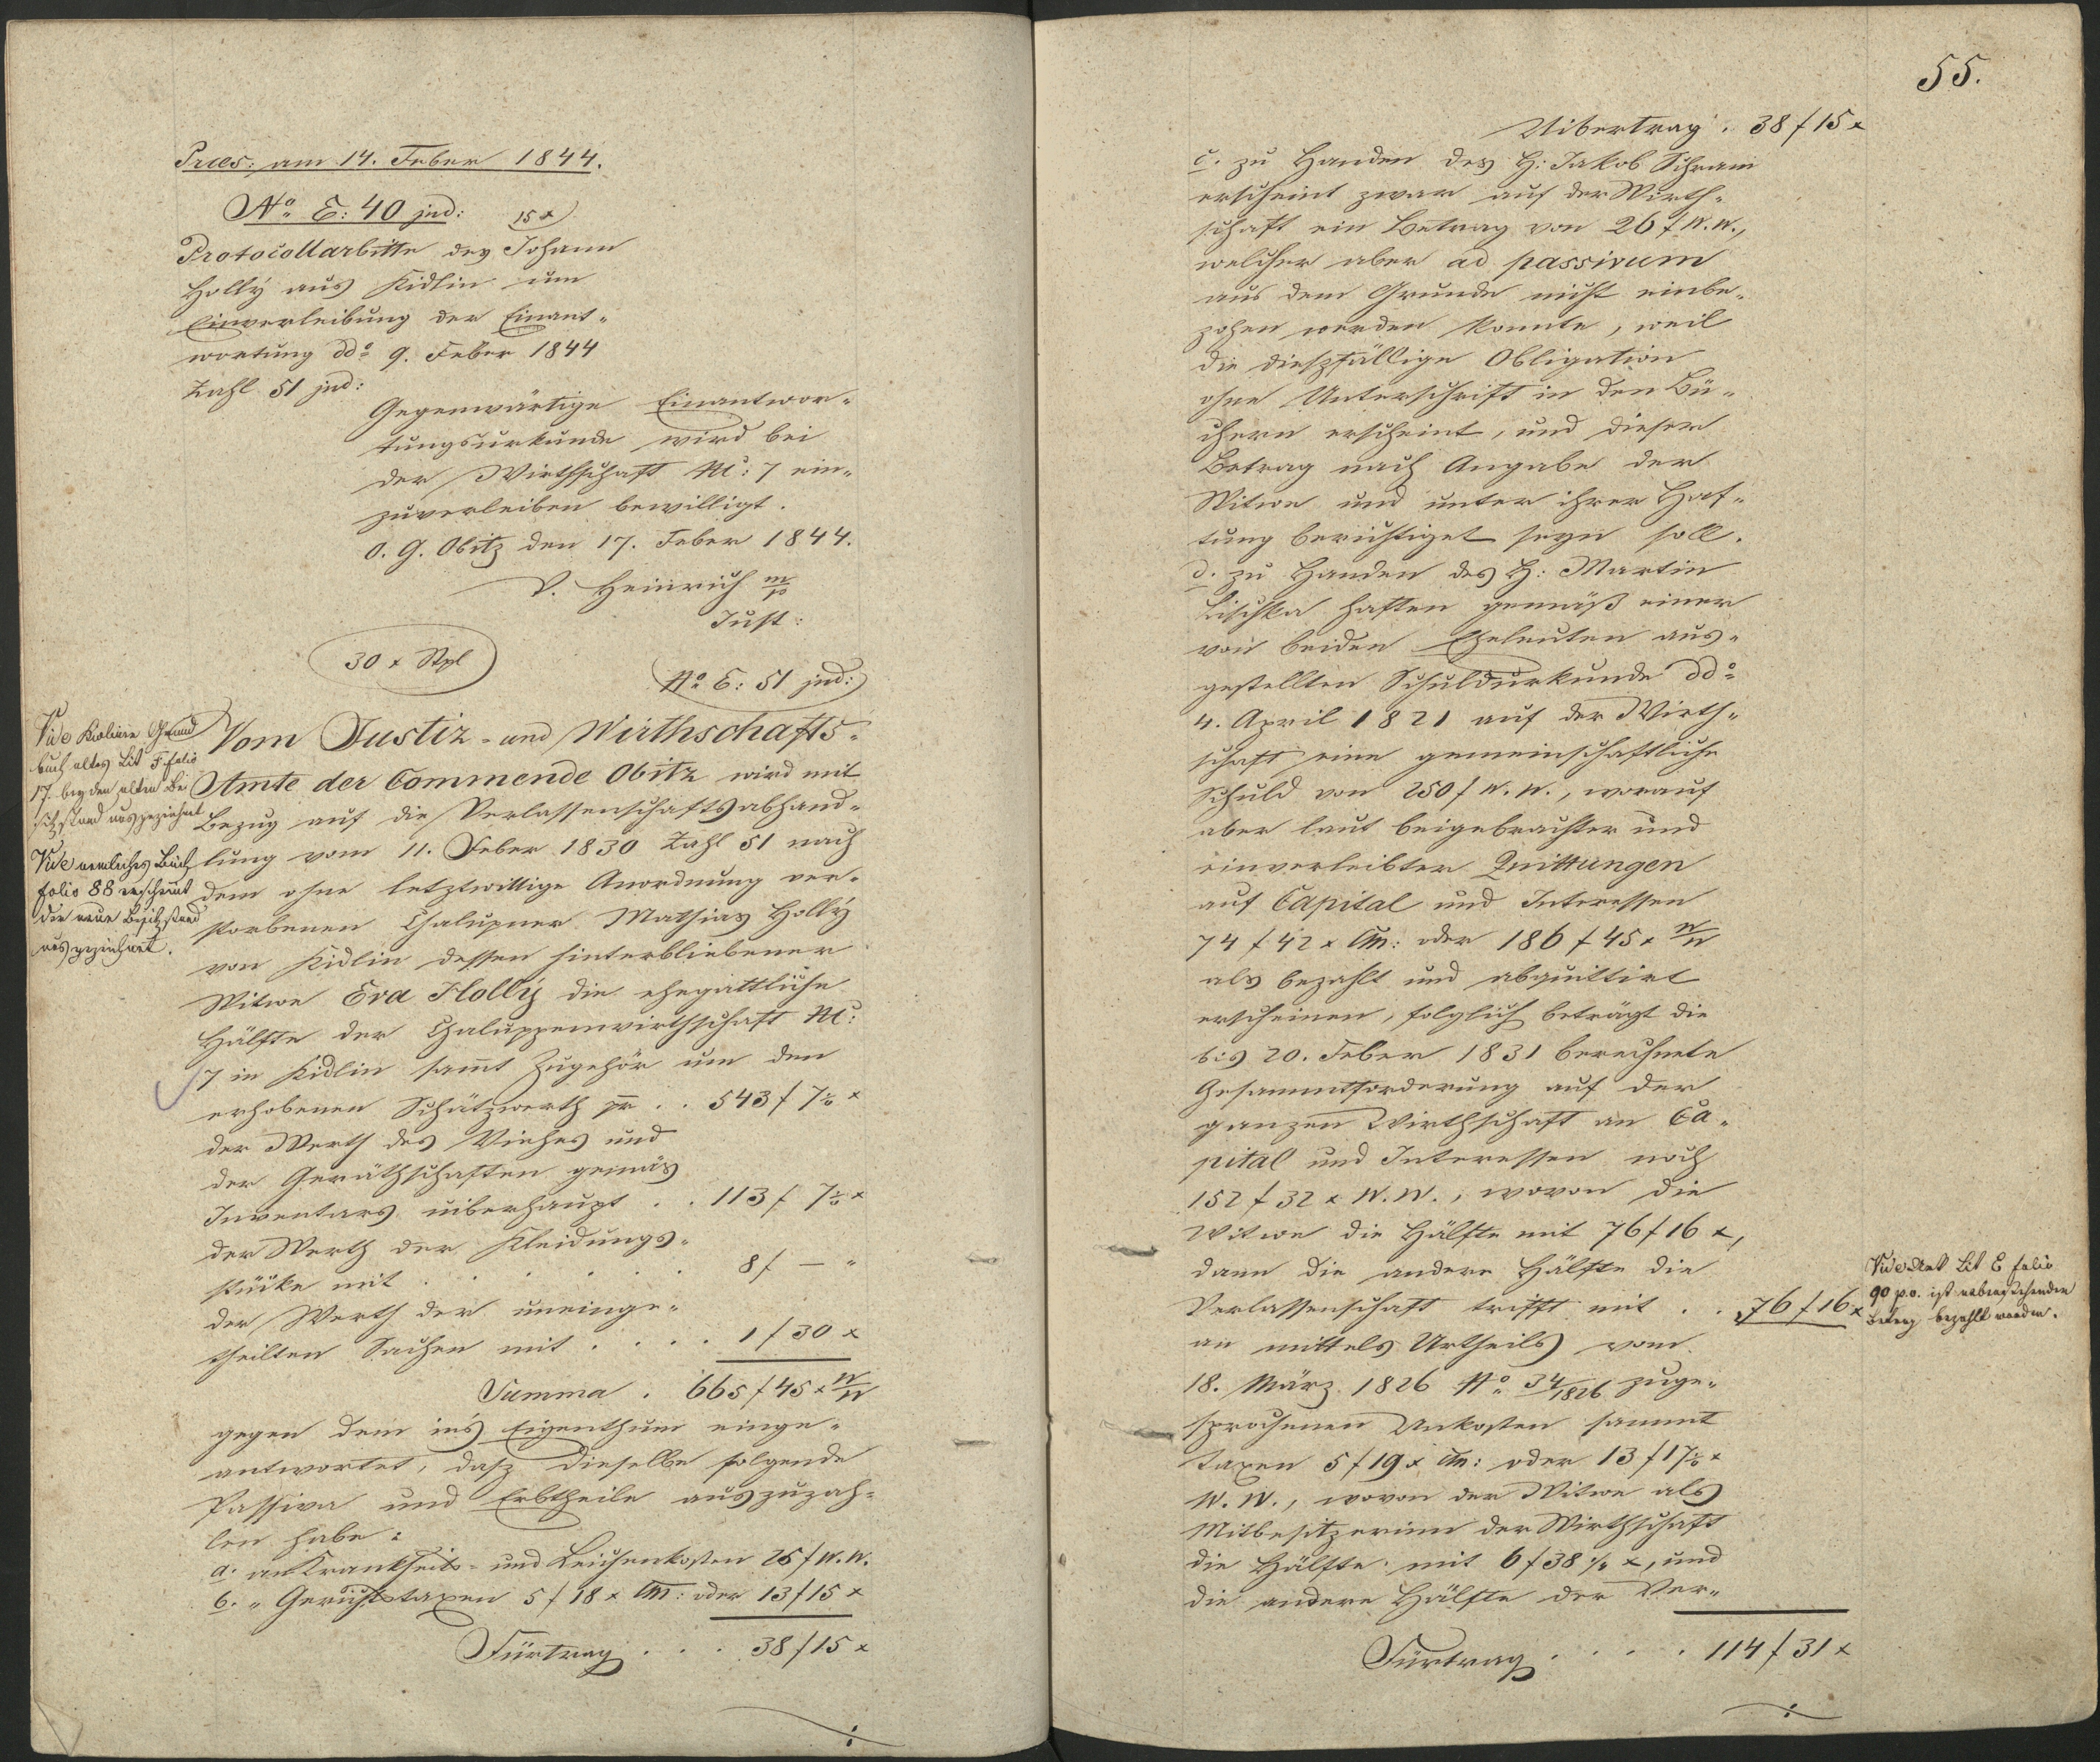 Præs: am 14. Feber 1844.
No. E: 40 jud: 15 x
Protocollarbitte des Johann
Hollÿ aus Kidlin um
Einverleibung der Einant-
wortung ddo. 9. Feber 1844
Zahl 51 jud:
Gegenwärtige Einantwor-
tungsurkunde wird bei
der Wirthschaft Nc: 7 ein-
zuverleiben bewilligt.
O. G. Obitz den 17. Feber 1844.
V. Heinrich m/p
Just:
30 x Stpl
No. E: 51 jud:
Vide Grund
buch altes Lit F. folio
17. bey den alten Be
sitzstand ausgezeichnet
Vide nemliches Buch
folio 88 erscheint
die neue Besitzstand
ausgezeichnet.
Vom Justiz- und Wirthschafts-
Amte der Commende Obitz wird mit
Bezug auf die Verlassenschaftsabhand-
lung vom 11. Feber 1830 Zahl 51 nach
dem ohne letztwillige Anordnung ver-
storbenen Chalupner Mathias Hollÿ
von Kidlin dessen hinterbliebener
Witwe Eva Hollÿ die ehegattliche
Hälfte der Chaluppenwirthschaft Nc:
7 in Kidlin sam̄t Zugehör um den
erhobenen Schätzwerth pr . . 543 f 7½ x
der Werth des Viehes und
der Geräthschaften gemäs
Inventars uiberhaupt . . 113 f 7½ x
der Werth der Kleidungs-
stücke mit . . . . . . 8 f — "
der Werth der uneinge-
theilten Sachen mit . . . . 1 f 30 x
Summa . 665 f 45 x W/W
gegen dem in's Eigenthum einge-
antwortet, dasz dieselbe folgende
Passiva und Erbtheile auszuzah-
len habe:
a. an Krankheits- und Leichenkosten 25 f W. W.
b. " Gerichtstaxen 5 f 18 x CM: oder 13 f 15 x
Fürtrag . . . 38 f 15 x
55.
Uibertrag . 38 f 15 x
c. zu Handen des H: Jakob Schram
erscheint zwar auf der Wirth-
schaft ein Betrag von 26 f W. W.,
welcher aber ad passivum
aus dem Grunde nicht einbe-
zohen werden konnte, weil
die dieszfällige Obligation
ohne Unterschrift in den Bü-
chern erscheint, und dieser
Betrag nach Angabe der
Witwe und unter ihrer Haf-
tung berichtiget seyn soll.
d. zu Handen des H: Martin
Lischka haften gemäß einer
von beiden Eheleuten aus-
gestellten Schuldurkunde ddo.
4. April 1821 auf der Wirth-
schaft eine gemeinschaftliche
Schuld von 250 f W. W., worauf
aber laut beigebrachter und
einverleibter Quittungen
auf Capital und Interessen
74 f 42 x CM: oder 186 f 45 x W/W
als bezahlt und abquittirt
erscheinen, folglich beträgt die
bis 20. Feber 1831 berechnete
Gesammtforderung auf der
ganzen Wirthschaft an Ca-
pital und Interessen noch
152 f 32 x W. W., wovon die
Witwe die Hälfte mit 76 f 16 x,
dann die andere Hälfte die
Verlassenschaft trifft mit . . 76 f 16 x
Vide Lit E folio
90 p.o. ist nebenstehender
Betrag bezahlt worden.
an mittels Urtheils vom
18. März 1826 No. 34/1826 zuge-
sprochenen Unkosten sammt
Taxen 5 f 19 x CM: oder 13 f 17½ x
W. W., wovon der Witwe als
Mitbesitzerinn der Wirthschaft
die Hälfte mit 6 f 38 ¾ x, und
die andere Hälfte der Ver-
Fürtrag . . . . 114 f 31 x